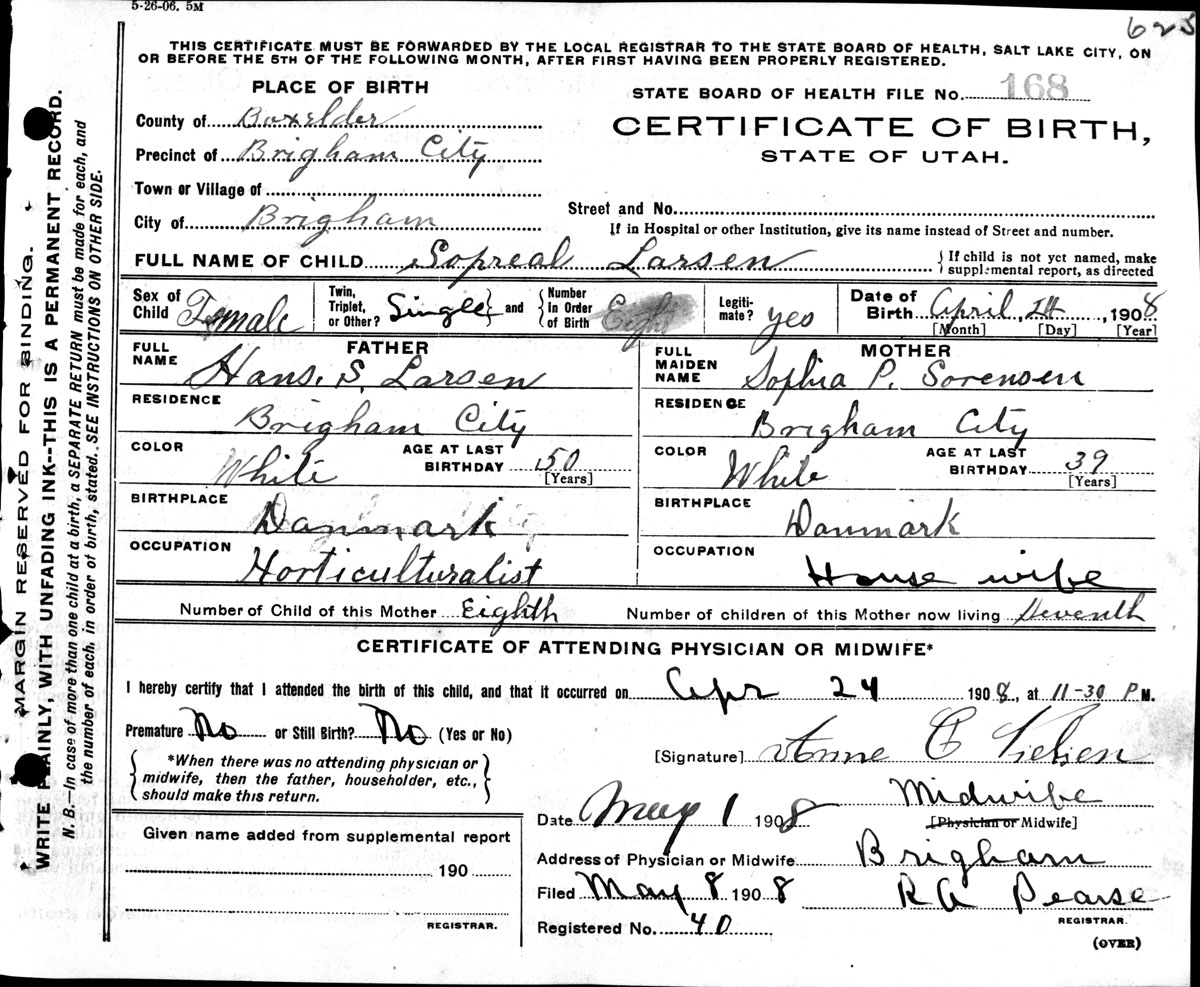 5-26-06. 5M
625
THIS CERTIFICATE MUST BE FORWARDED BY THE LOCAL REGISTRAR TO THE STATE BOARD OF HEALTH, SALT LAKE CITY, ON
OR BEFORE THE 5TH OF THE FOLLOWING MONTH, AFTER FIRST HAVING BEEN PROPERLY REGISTERED.
PLACE OF BIRTH
STATE BOARD OF HEALTH FILE No. 168
County of Boxelder
CERTIFICATE OF BIRTH,
Precinct of Brigham City
STATE OF UTAH.
Town or Village of
Street and No.
City of Brigham
If in Hospital or other Institution, give its name instead of Street and number.
FULL NAME OF CHILD Sopreal Larsen
If child is not yet named, make
supplemental report, as directed
Sex of Child Female
Twin, Triplet, or Other? Single and Number In Order of Birth Eight
Legitimate? yes
Date of Birth April, 24, 1908
[Month] [Day] [Year]
FATHER
FULL NAME Hans. S. Larsen
MOTHER
FULL MAIDEN NAME Sophia P. Sorensen
RESIDENCE Brigham City
RESIDENCE Brigham City
COLOR White AGE AT LAST BIRTHDAY 50 [Years]
COLOR White AGE AT LAST BIRTHDAY 39 [Years]
BIRTHPLACE Danmark
BIRTHPLACE Danmark
OCCUPATION Horticulturalist
OCCUPATION House wife
Number of Child of this Mother Eighth Number of children of this Mother now living Seventh
CERTIFICATE OF ATTENDING PHYSICIAN OR MIDWIFE*
I hereby certify that I attended the birth of this child, and that it occurred on Apr 24 1908, at 11-30 P.M.
Premature No or Still Birth? No (Yes or No)
[Signature] Anne C Nielsen
*When there was no attending physician or
midwife, then the father, householder, etc.,
should make this return.
Midwife
Date May 1 1908 [Physician or Midwife]
Given name added from supplemental report
190
REGISTRAR.
Address of Physician or Midwife Brigham
Filed May 8 1908 R A Pearse
REGISTRAR.
Registered No. 40
(OVER)
MARGIN RESERVED FOR BINDING.
WRITE PLAINLY, WITH UNFADING INK--THIS IS A PERMANENT RECORD.
N. B.—In case of more than one child at a birth, a SEPARATE RETURN must be made for each, and
the number of each, in order of birth, stated. SEE INSTRUCTIONS ON OTHER SIDE.